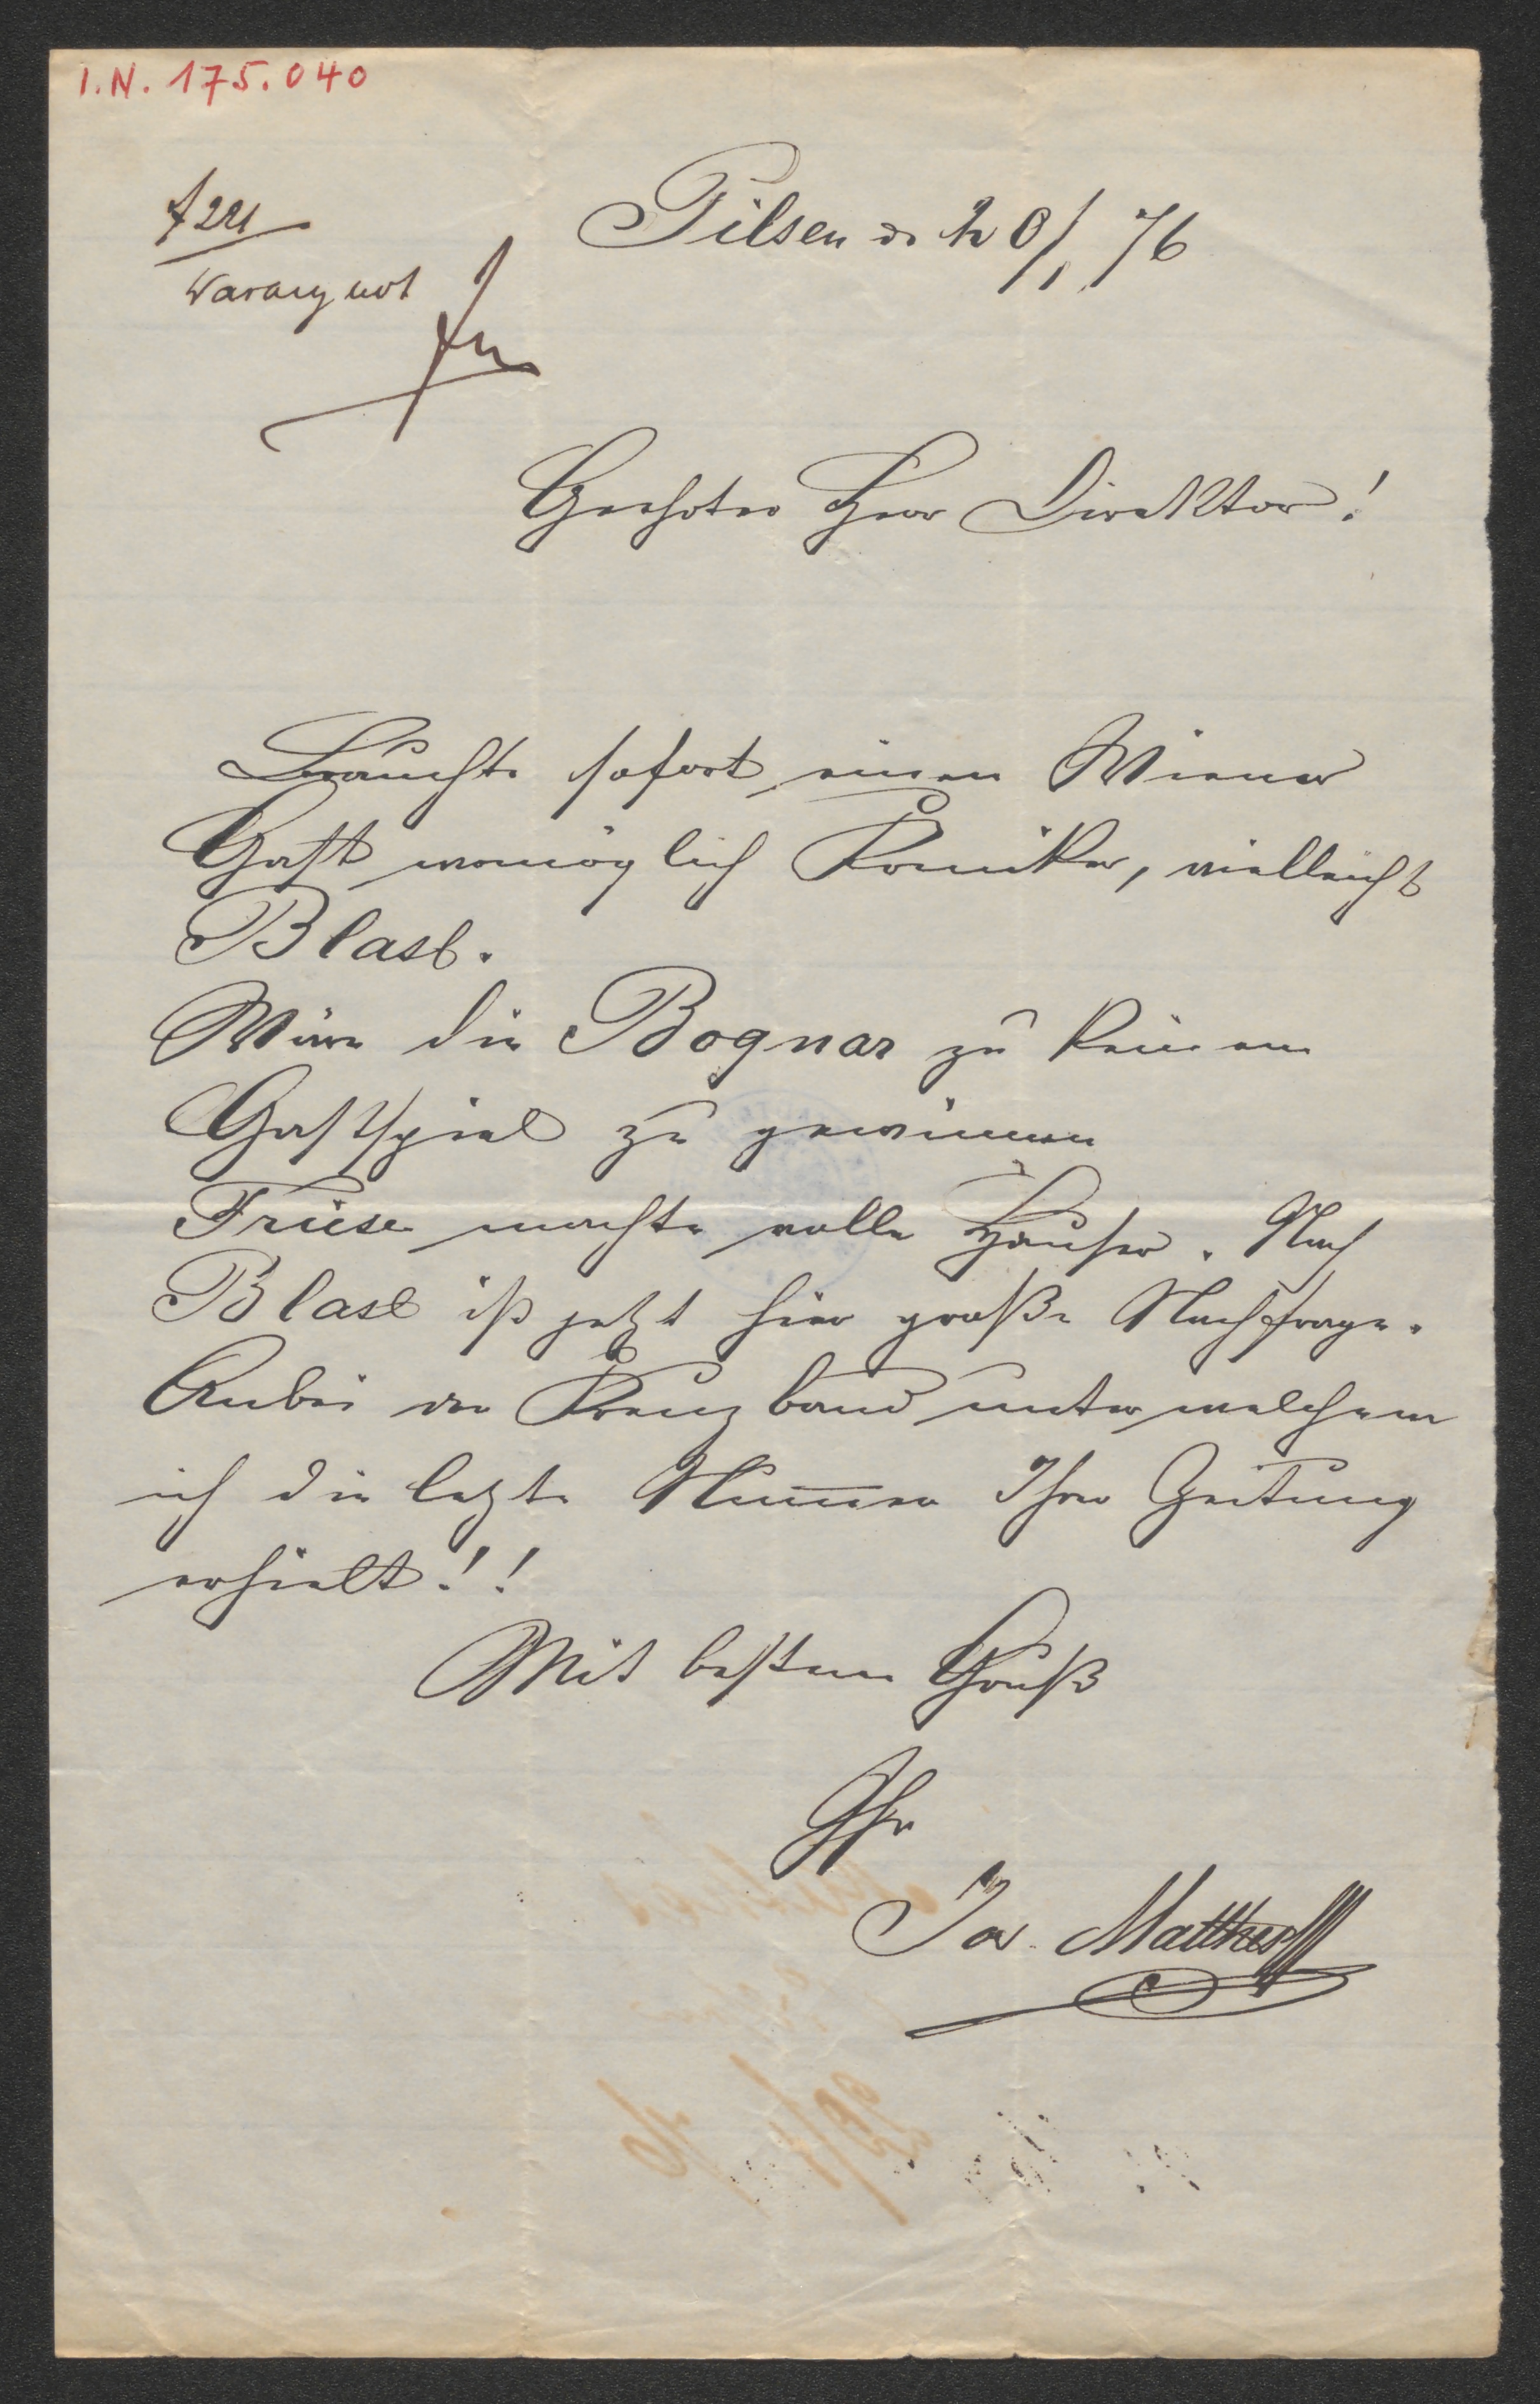 I.N. 175.040
Pilsen d. 20/1 76
Geehrter Herr Direktor!
Brauchte sofort einen Wiener
Gast womöglich Komiker, vielleicht
Blasl.
Wäre die Bognar zu keinem
Gastspiel zu gewinnen
Friese machte volle Häuser. Nach
Blasl ist jetzt hier große Nachfrage.
Anbei das Kreuzband unter welchem
ich die letzte Nummer Ihrer Zeitung
erhielt!!
Mit bestem Gruß
Ihr
Jos. Matthes